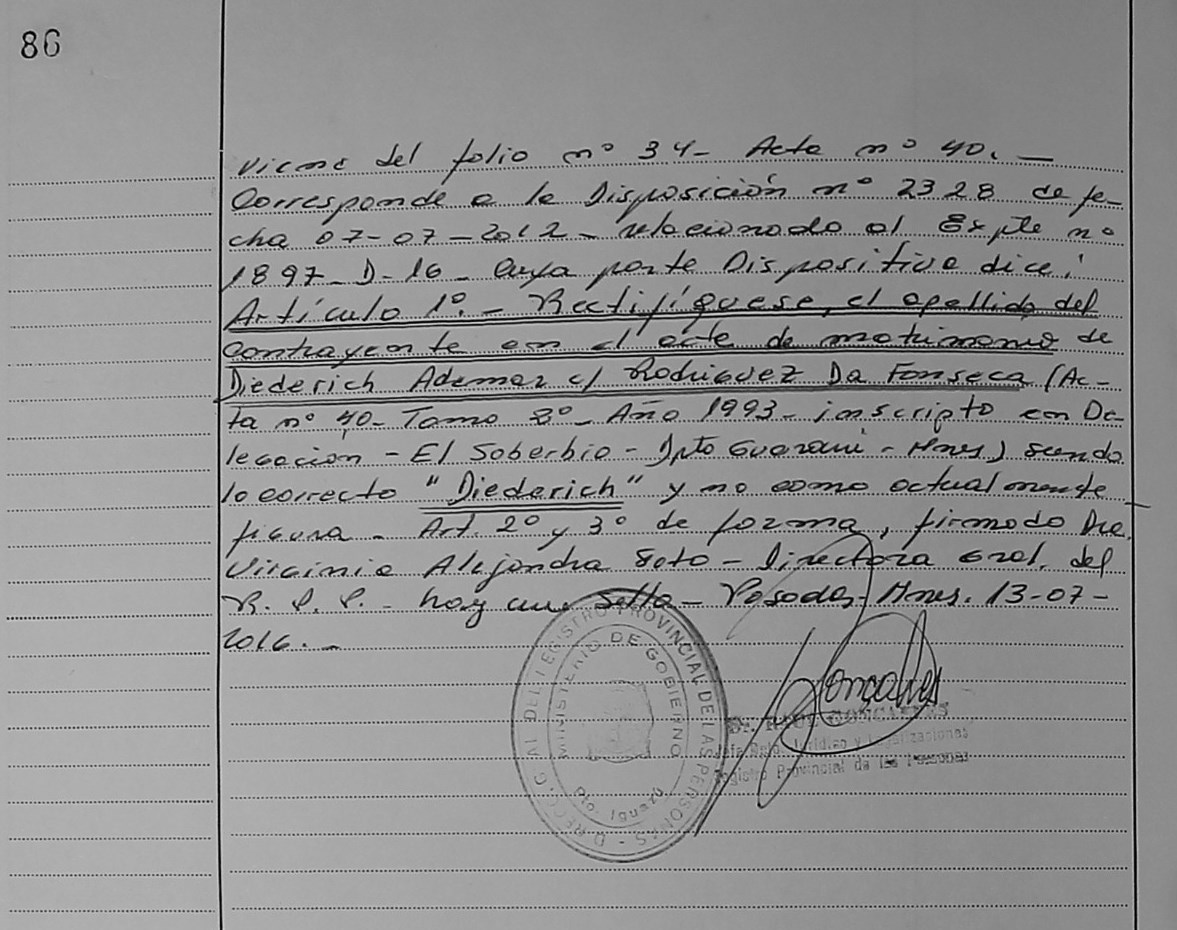 86
Viene del folio nº 34- Acta nº 40. —
Corresponde a la Disposición nº 2328 de fe-
cha 07-07-2012- relacionado al Expte nº
1897-D-16- Cuya parte Dispositiva dice:
Artículo 1º. - Rectifíquese, el apellido del
contrayente en el acta de matrimonio de
Diederich Ademar c/ Rodriguez Da Fonseca (Ac-
ta nº 40- Tomo 2º- Año 1993- inscripto en De
legación - El Soberbio - Dpto Guaraní - Mnes) siendo
lo correcto "Diederich" y no como actualmente
figura - Art. 2º y 3º de forma, firmado Dra.
Virginia Alejandra Soto - Directora Gral. del
R. P. P. - hay un Sello - Posadas, Mnes. 13-07-
2016. -
Goncalves
Dr. RAUL GONCALVES
Jefe Dpto. Jurídico y Legalizaciones
Registro Provincial de las Personas
DIRECC. GRAL DEL REGISTRO PROVINCIAL DE LAS PERSONAS
MINISTERIO DE GOBIERNO
Pto. Iguazú